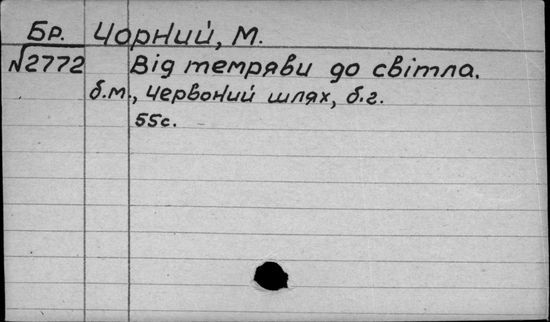 Бр. Чорний, М.
№2772 Від темряви до світла.
б.м., Червоний шлях, б.г.
55с.